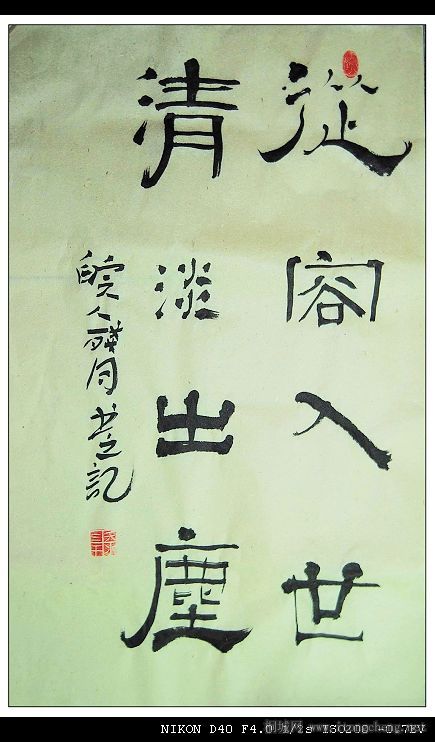 從容入世
清淡出塵
皖人醉月書之記
NIKON D40 F4.0 1/2s ISO200 -0.7EV